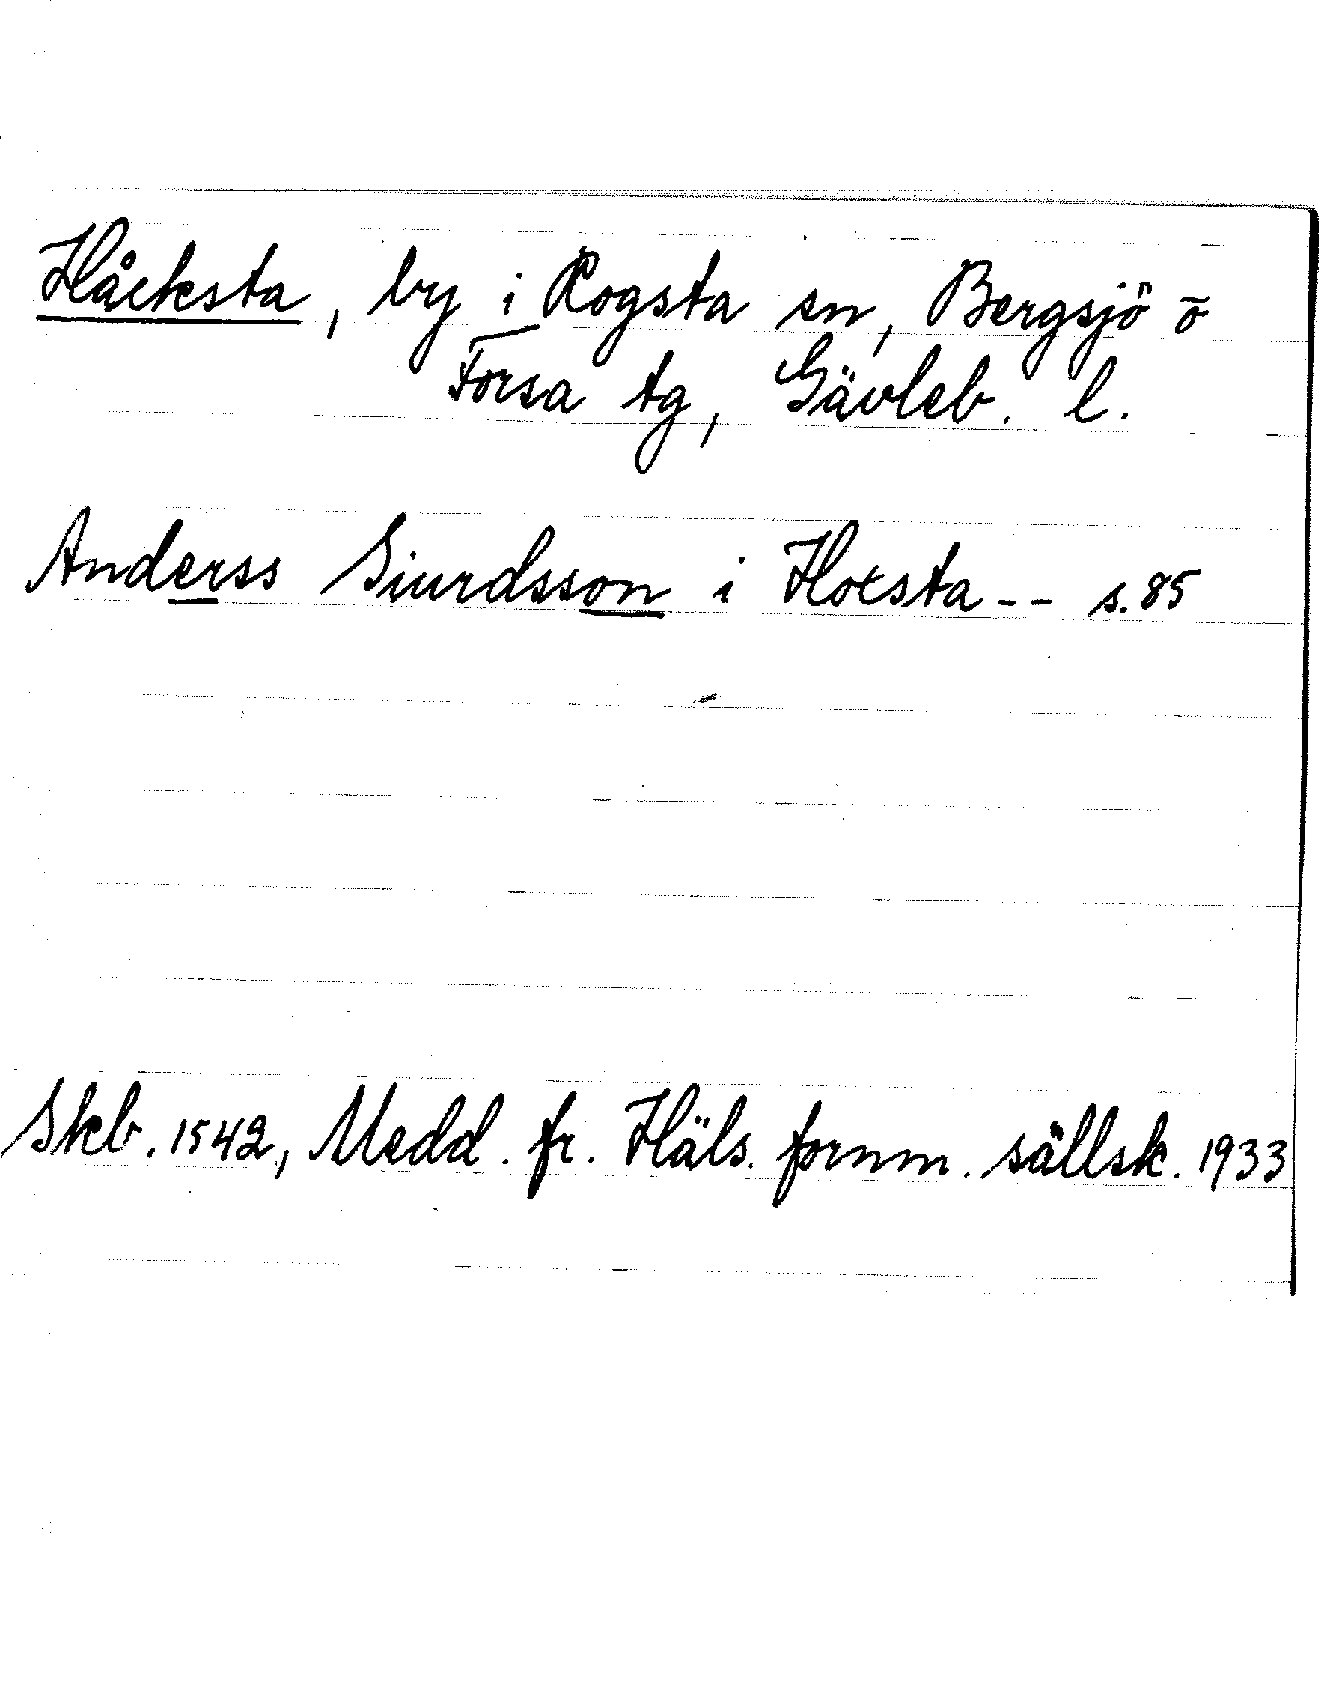 Håcksta, by i Rogsta sn, Bergsjö o
Forsa tg, Gävleb. l.
Anderss Siurdsson i Hocsta -- s. 85
Skb. 1542, Medd. fr. Häls. fornm. sällsk. 1933